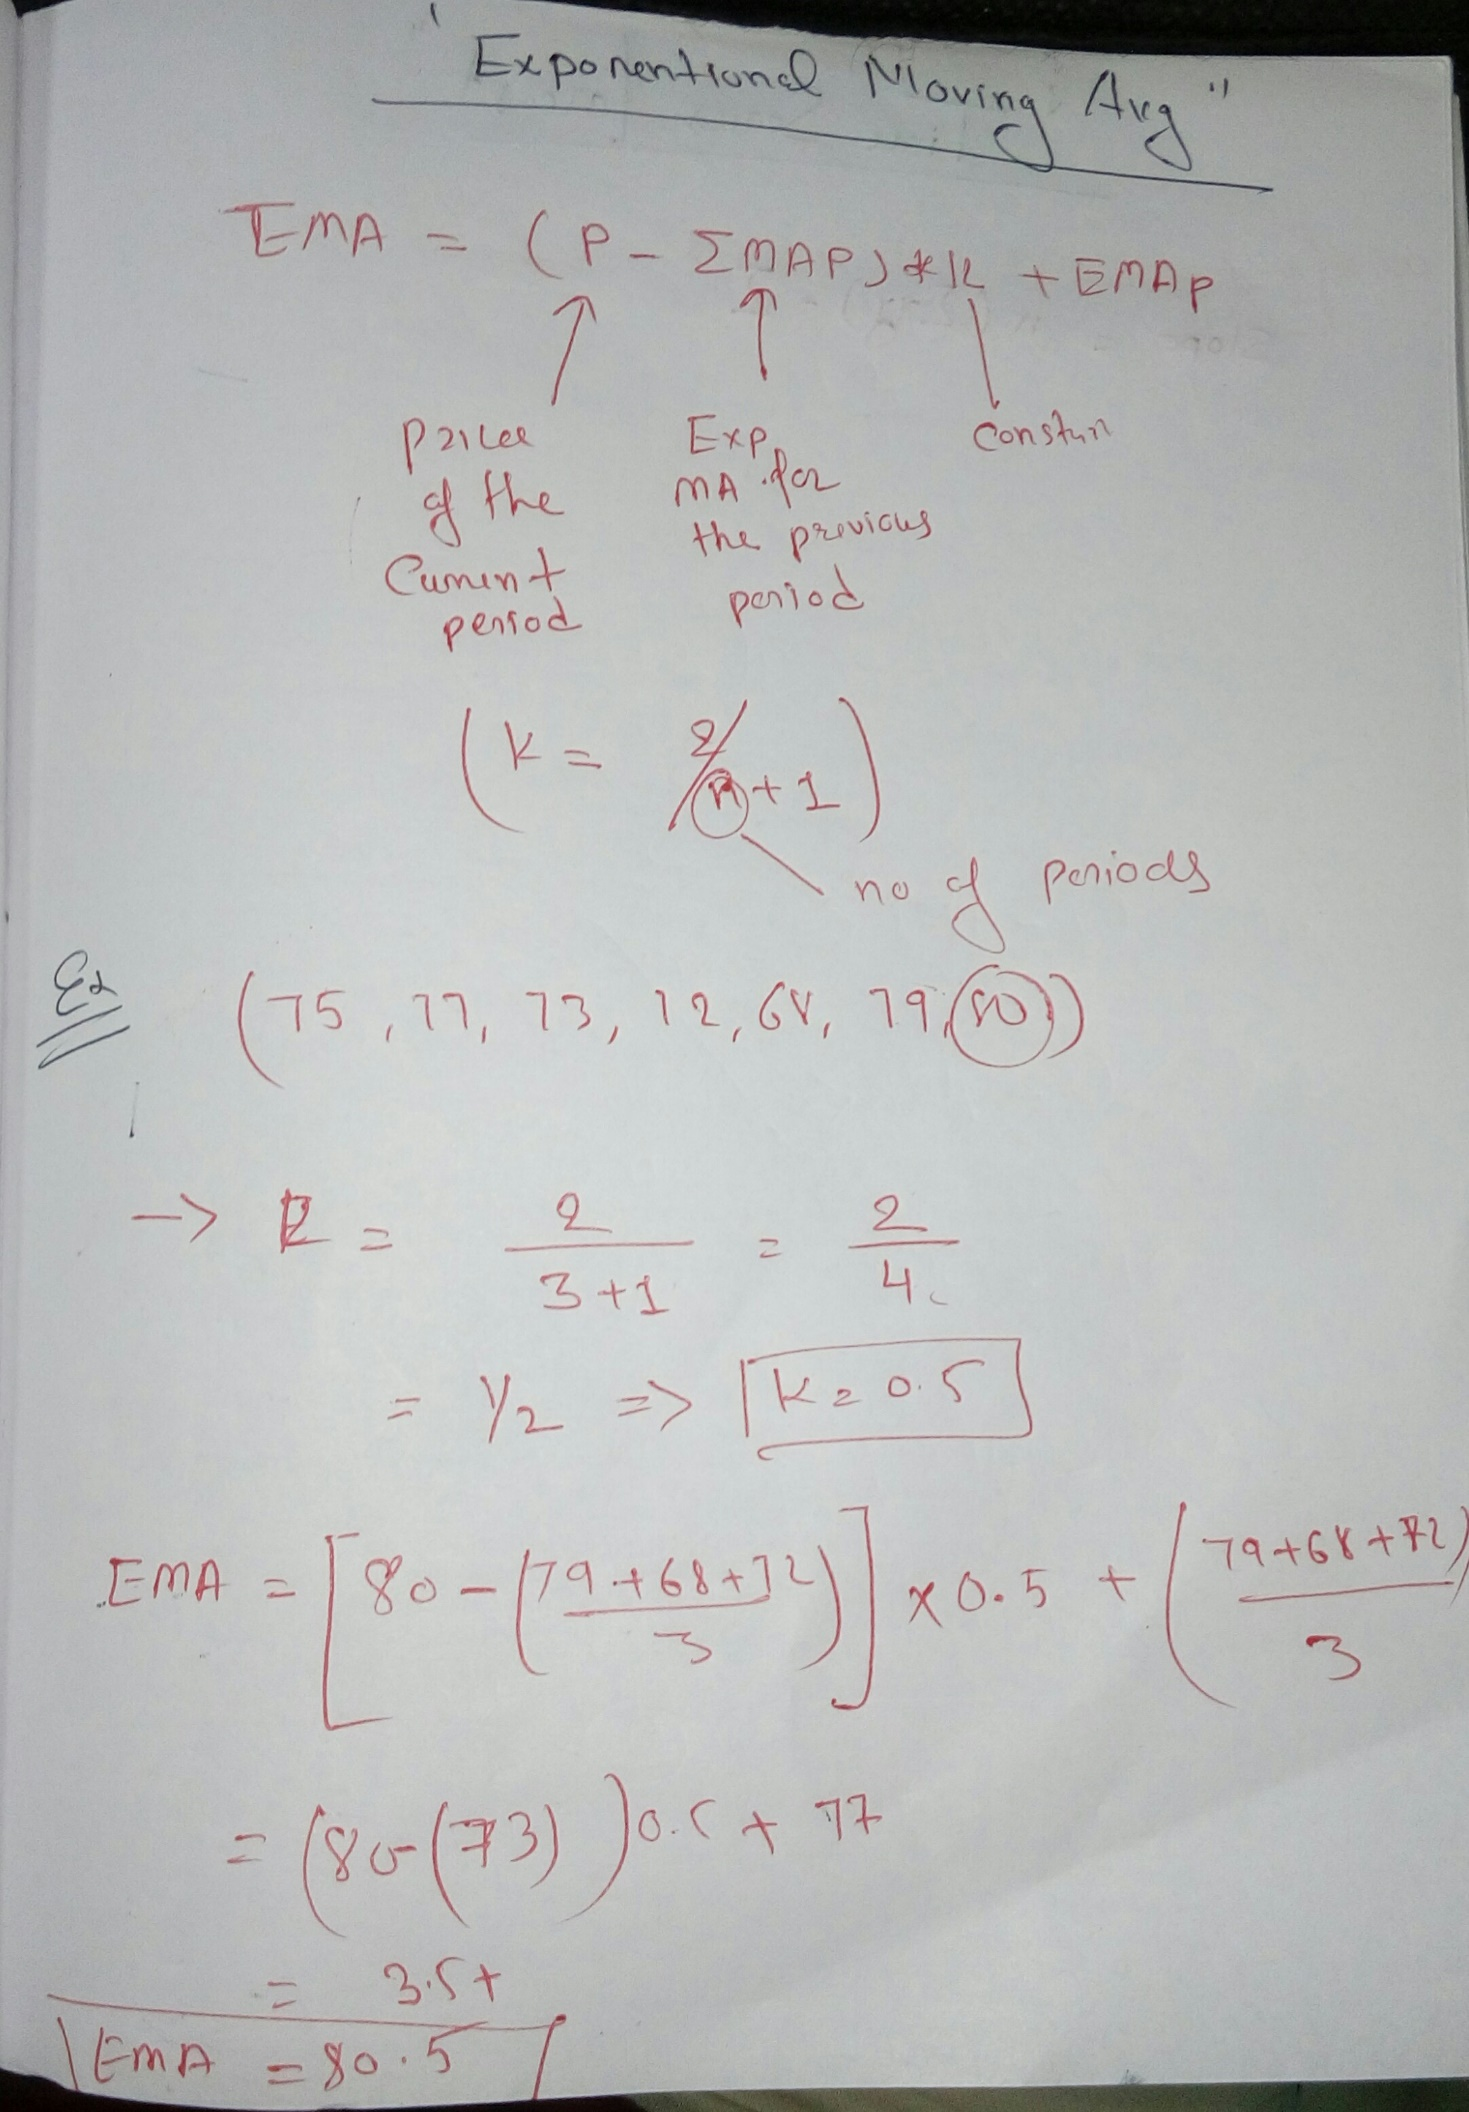 "Exponentional Moving Avg"
EMA = (P - ΣMAP) * K + EMAP
Price of the Current period
Exp MA for the previous period
Constan
(K = 2/n+1)
no of periods
Ex (75, 77, 73, 72, 68, 79, 80)
-> K = 2/3+1 = 2/4
= 1/2 => K = 0.5
EMA = [80 - (79+68+72/3)] x 0.5 + (79+68+72)/3
= (80-(73))0.5 + 77
= 3.5+
EMA = 80.5